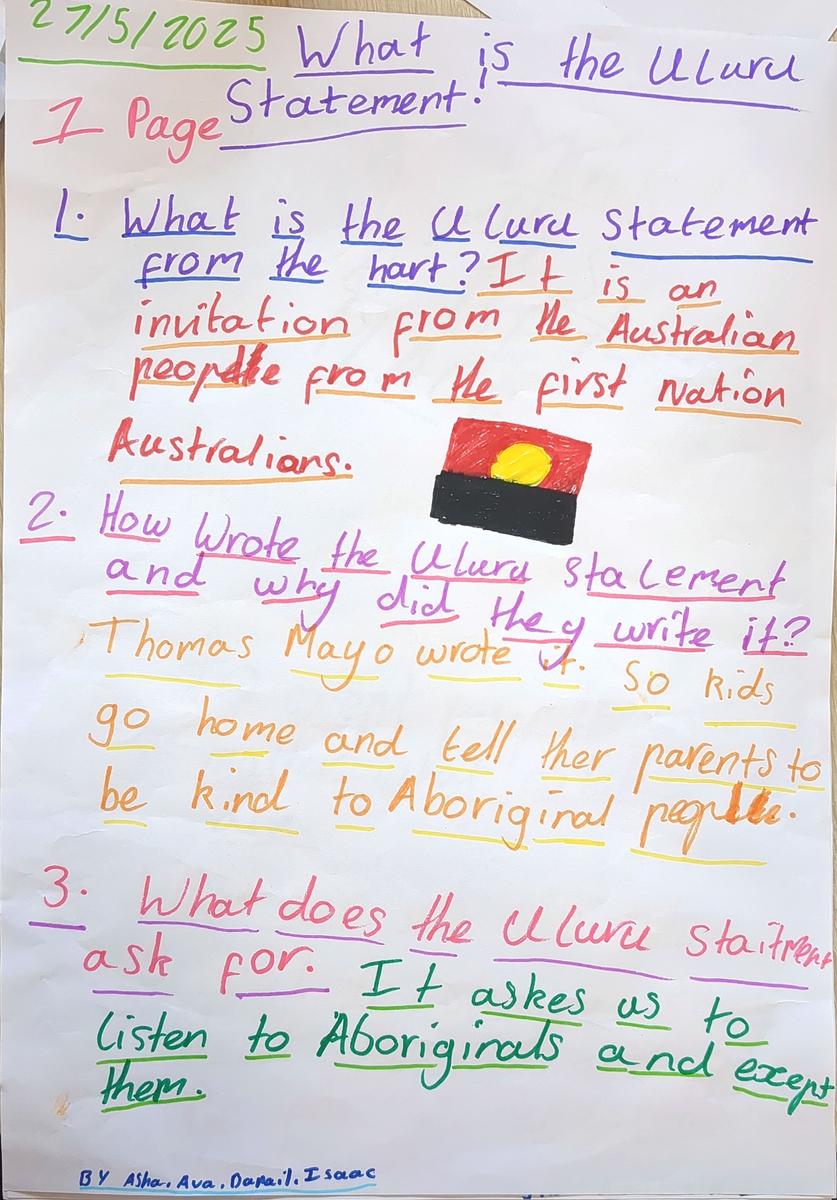 27/5/2025 What is the Uluru
1 Page Statement!
1. What is the Uluru Statement
from the hart? It is an
invitation from the Australian
people from the first Nation
Australians.
2. How Wrote the Uluru Statement
and why did they write it?
Thomas Mayo wrote it. So kids
go home and tell ther parents to
be kind to Aboriginal people.
3. What does the Uluru Staitment
ask for. It askes us to
listen to Aboriginals and exept
them.
BY Asha, Ava, Danail, Isaac